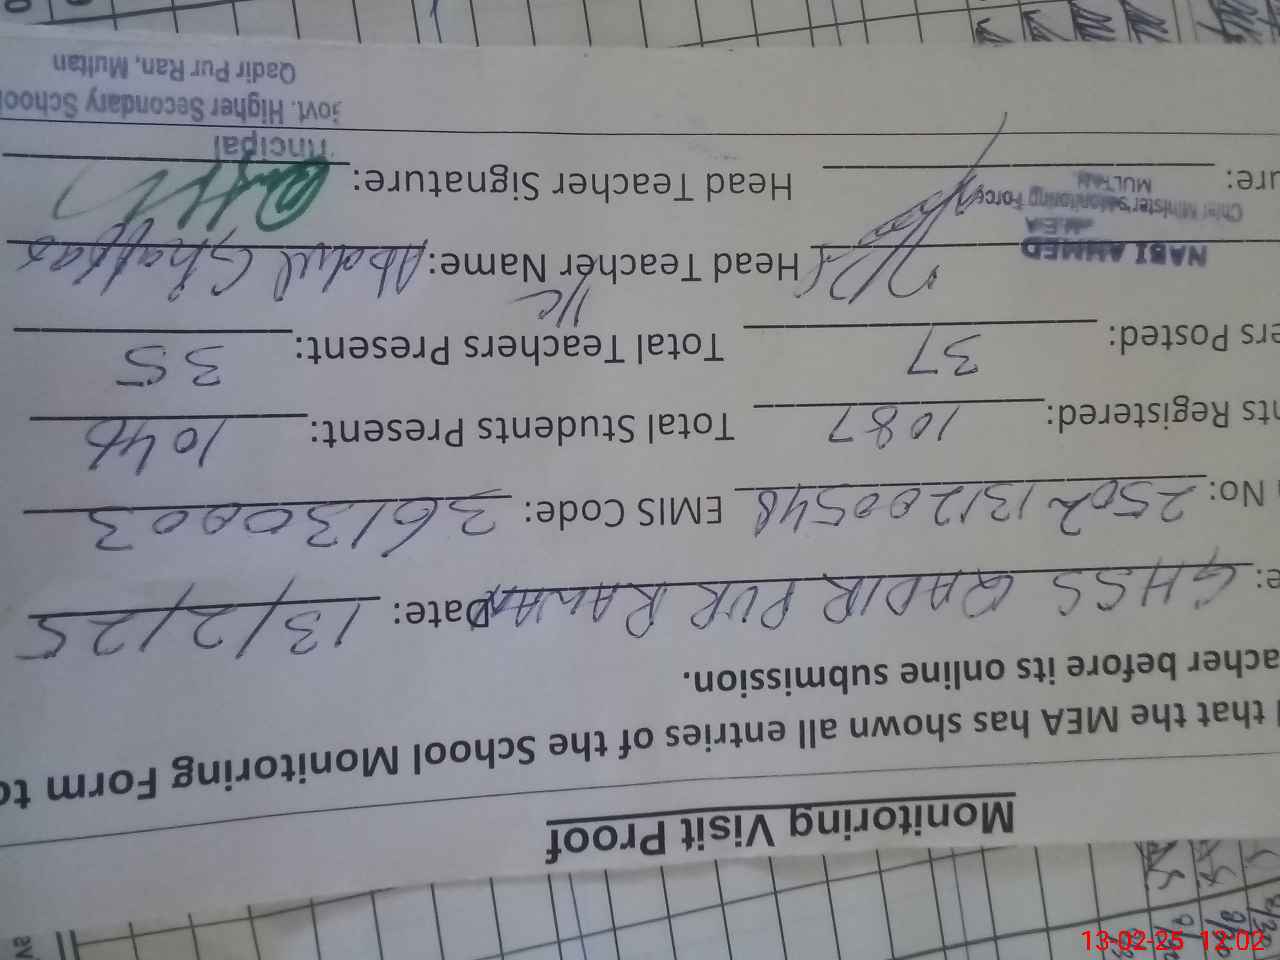 Monitoring Visit Proof
that the MEA has shown all entries of the School Monitoring Form to
acher before its online submission.
e: GHSS QADIR PUR RAWAN Date: 13/2/25
No: 2502131200548 EMIS Code: 36130003
ts Registered: 1087 Total Students Present: 1046
ers Posted: 37 Total Teachers Present: 35
I/C
Head Teacher Name: Abdul Ghaffar
NABI AHMED
MEA
Chief Minister's Monitoring Force
MULTAN
ure: Head Teacher Signature:
rincipal
Govt. Higher Secondary School
Qadir Pur Ran, Multan
13-02-25 12:02